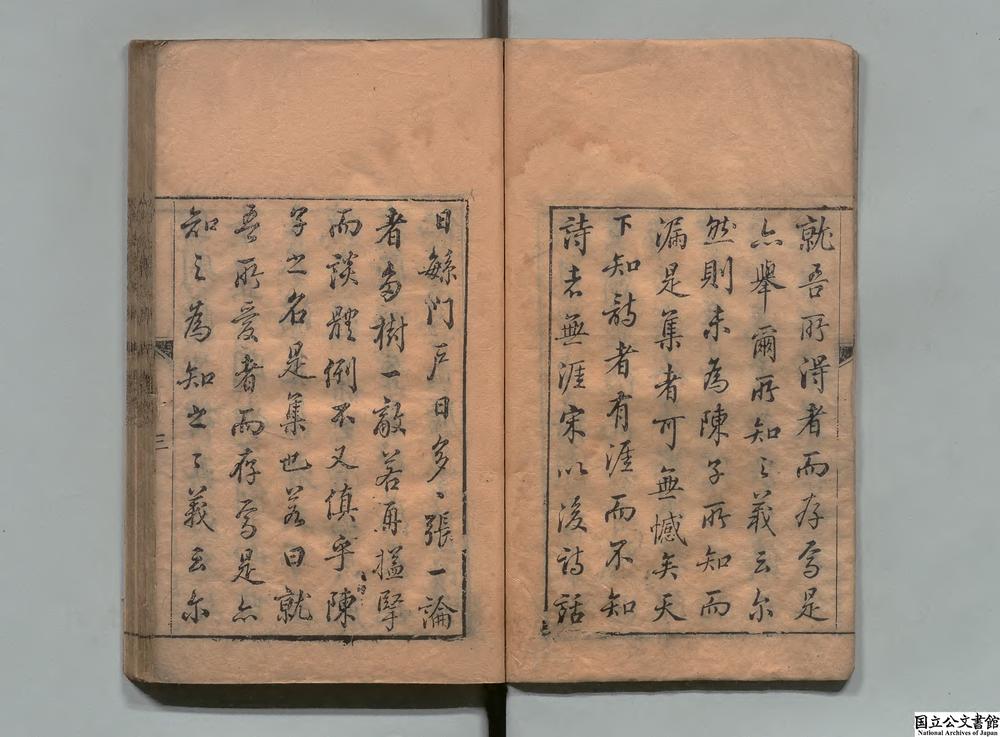 就吾所得者而存焉是
亦舉爾所知之義云尔
然則未為陳子所知而
漏是集者可無憾矣天
下知詩者有涯而不知
詩者無涯宋以後詩話
日繇門戶日多〻張一論
者多樹一敵若再搤掔
而談體例不又慎乎陳
子之名是集也若曰就
吾所愛者而存焉是亦
知之為知之〻義云尔
三
国立公文書館
National Archives of Japan